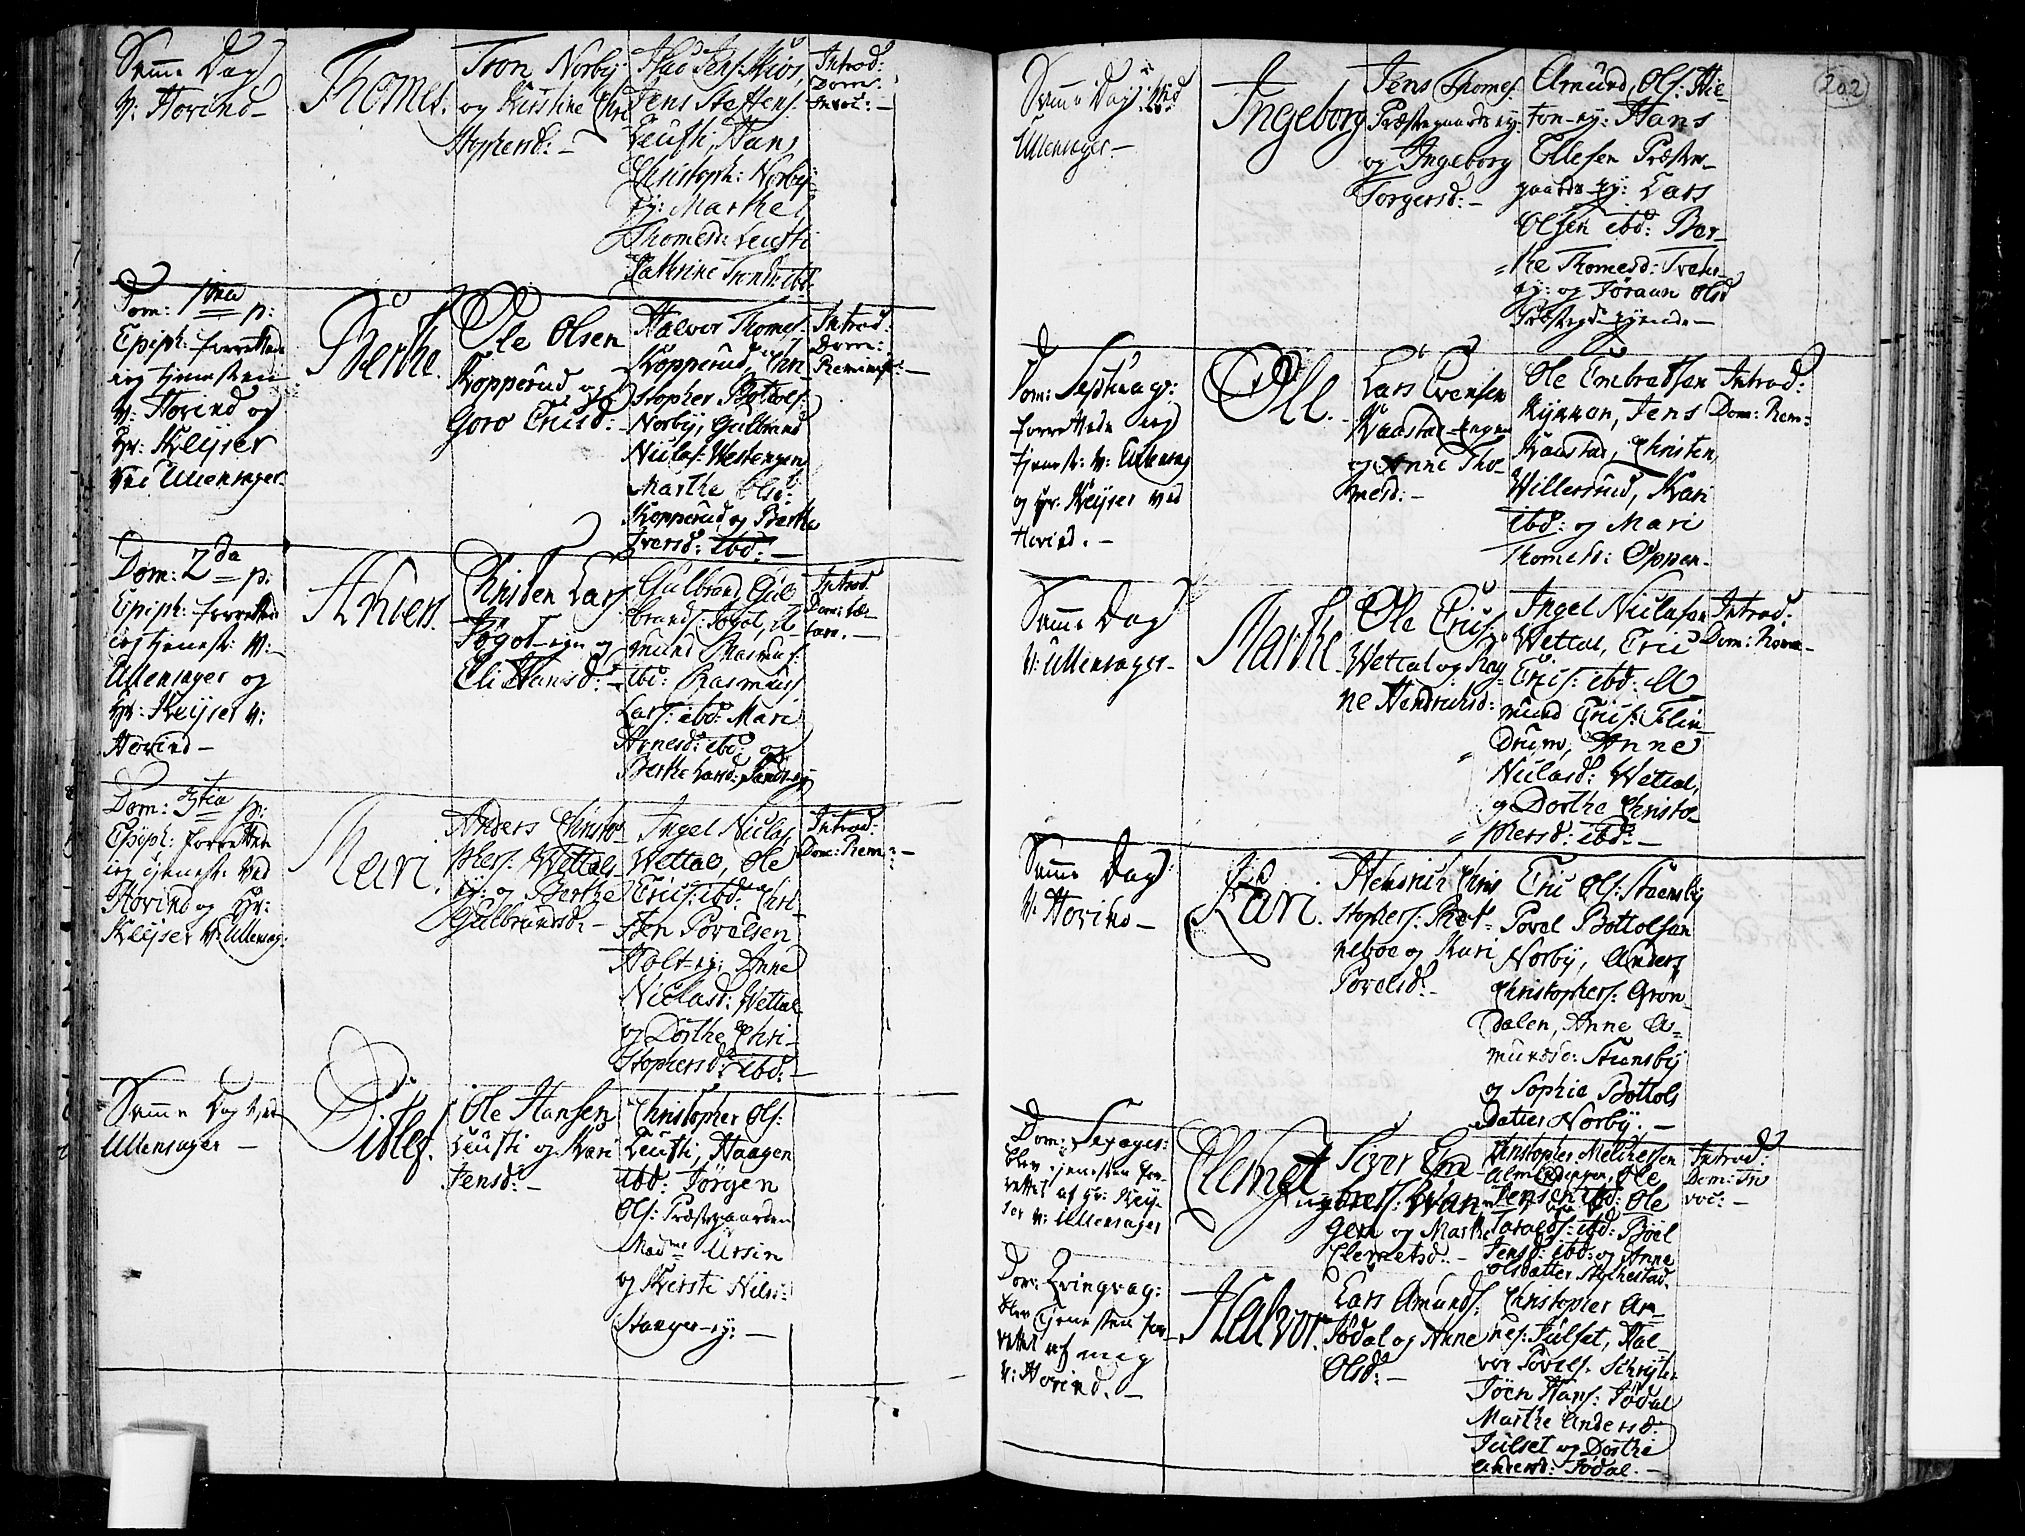 Samme Dag
v: Hovind –
Thomes.
Tron Norby-
og Kirstine Chri
stophersd: –
Jens Steffens:
Leusti, Hans
Christoph: Norby
ey: Marthe
Thomesd: Leusti
Kathrine Tronsd: ibd:
Introd:
Dom:
Invoc: –
Dom: 1ma p:
Epiph: forrettede
ieg tjenesten
v: Hovind og
Hr: Keyser
ved Ullensager.
Berthe.
Ole Olsen
Kopperud og
Goro Ericsd: –
Halvor Thomes:
Kopperud, Chri
stopher Bottols:
Norby, Gulbrand
Niclas: Westengen
Marthe Olsd:
Kopperud og Berthe
Iversd: ibd: –
Introd:
Dom:
Reminisc: –
Dom: 2da p:
Epiph: forrettede
ieg tjenest: v:
Ullensager og
Hr: Keyser v:
Hovind –
Anders.
Christen Lars:
Jogot-eyn og
Eli Hansd: –
Gulbrand Gul
brands: Jogot, A
mund Rasmus:
ibd: Rasmus
Lars: ibd: Mari
Arnesd: ibd: og
Berthe Larsd: Sand-ey
Introd
Dom: Læ-
tare. –
Dom: 3tia p:
Epiph: forrettede
ieg tjenest: ved
Hovind og Hr:
Keyser v: Ullensag:
Mari.
Anders Christo
phers: Wettal-
ey: og Berthe
Gulbrandsd: –
Ingel Niclas:
Wettal, Ole
Erics: ibd: Chri-
sten Povelsen
Holt-ey: Anne
Niclasd: Wettal
og Dorthe Chri-
stophersd: ibd: –
Introd:
Dom: Rem: –
Samme Dag ved
Ullensager –
Ditlef.
Ole Hansen
Leusti og Kari
Jensd: –
Christopher Ols:
Leusti, Haagen
ibd: Jørgen
Ols: Præstegaarden
Madme Ursin
og Kersti Nils:
Stanger-ey: –
202
Samme Dag ved
Ullensager. –
Ingeborg
Jens Thomes:
Præstegaards ey:
og Ingeborg
Torgersd: –
Amund Ols: Hie-
ton-ey: Hans
Ellesen Præste-
gaards-ey: Lars
Olsen ibd: Ber-
the Thomesd:
ey: og Jøraan Olsd
Præstegds tjende –
Dom: Septuag:
forrettede ieg
tjenest: v: Ullensag
og Hr: Keyser ved
Hovind. –
Ole.
Lars Evensen
Kaastad-engen
og Anne Tho-
mesd: –
Ole Embretsen
Rynnan, Jens
Kaastad, Christen
Willersrud, Kari
ibd: og Mari
Thomesd: Oppen –
Introd:
Dom: Rem:
Samme Dag
v: Ullensager –
Marthe
Ole Erics:
Wettal og Rag
ne Hendrichsd:
Ingel Niclasen
Wettal, Eric
Erics: ibd: A
mund Erics: Flin
drum, Anne
Niclasd: Wettal,
og Dorthe Christo-
phersd: ibd: –
Introd:
Dom: Rem –
Samme Dag
v: Hovind –
Kari.
Hendrich Chris
stophers:
og Kari
Povelsd: –
Eric Ols: Stensby
Povel Bottolsen
Norby, Anders
Christophers: Grøn
dalen, Anne A-
mundsd: Stensby
og Sophie Bottols
datter Norby. –
Dom: Sexages:
blev tjenesten for-
rettet af Hr: Key-
ser v: Ullensager
Clemet
Siver Em
bret-
gen og Marthe
Clemetsd: –
Christopher Melchersen
Almedieppen, Ole
Jensen ibd: Ole
Taralds: ibd: Boel
Jensd: ibd: og Anne
Olsdatter Stychestad.
Introd:
Dom: In
voc: –
Dom: Qvinqvag:
blev Tjenesten for-
rettet af mig
v: Hovind. –
Halvor.
Lars Amunds:
Jødal og Anne
Olsd: –
Christopher Ar-
nes: Julset, Hal-
vor Povels:
Joen Hans: Jødal
Marthe Andersd:
Julset og Dorthe
Andersd: Jødal. –